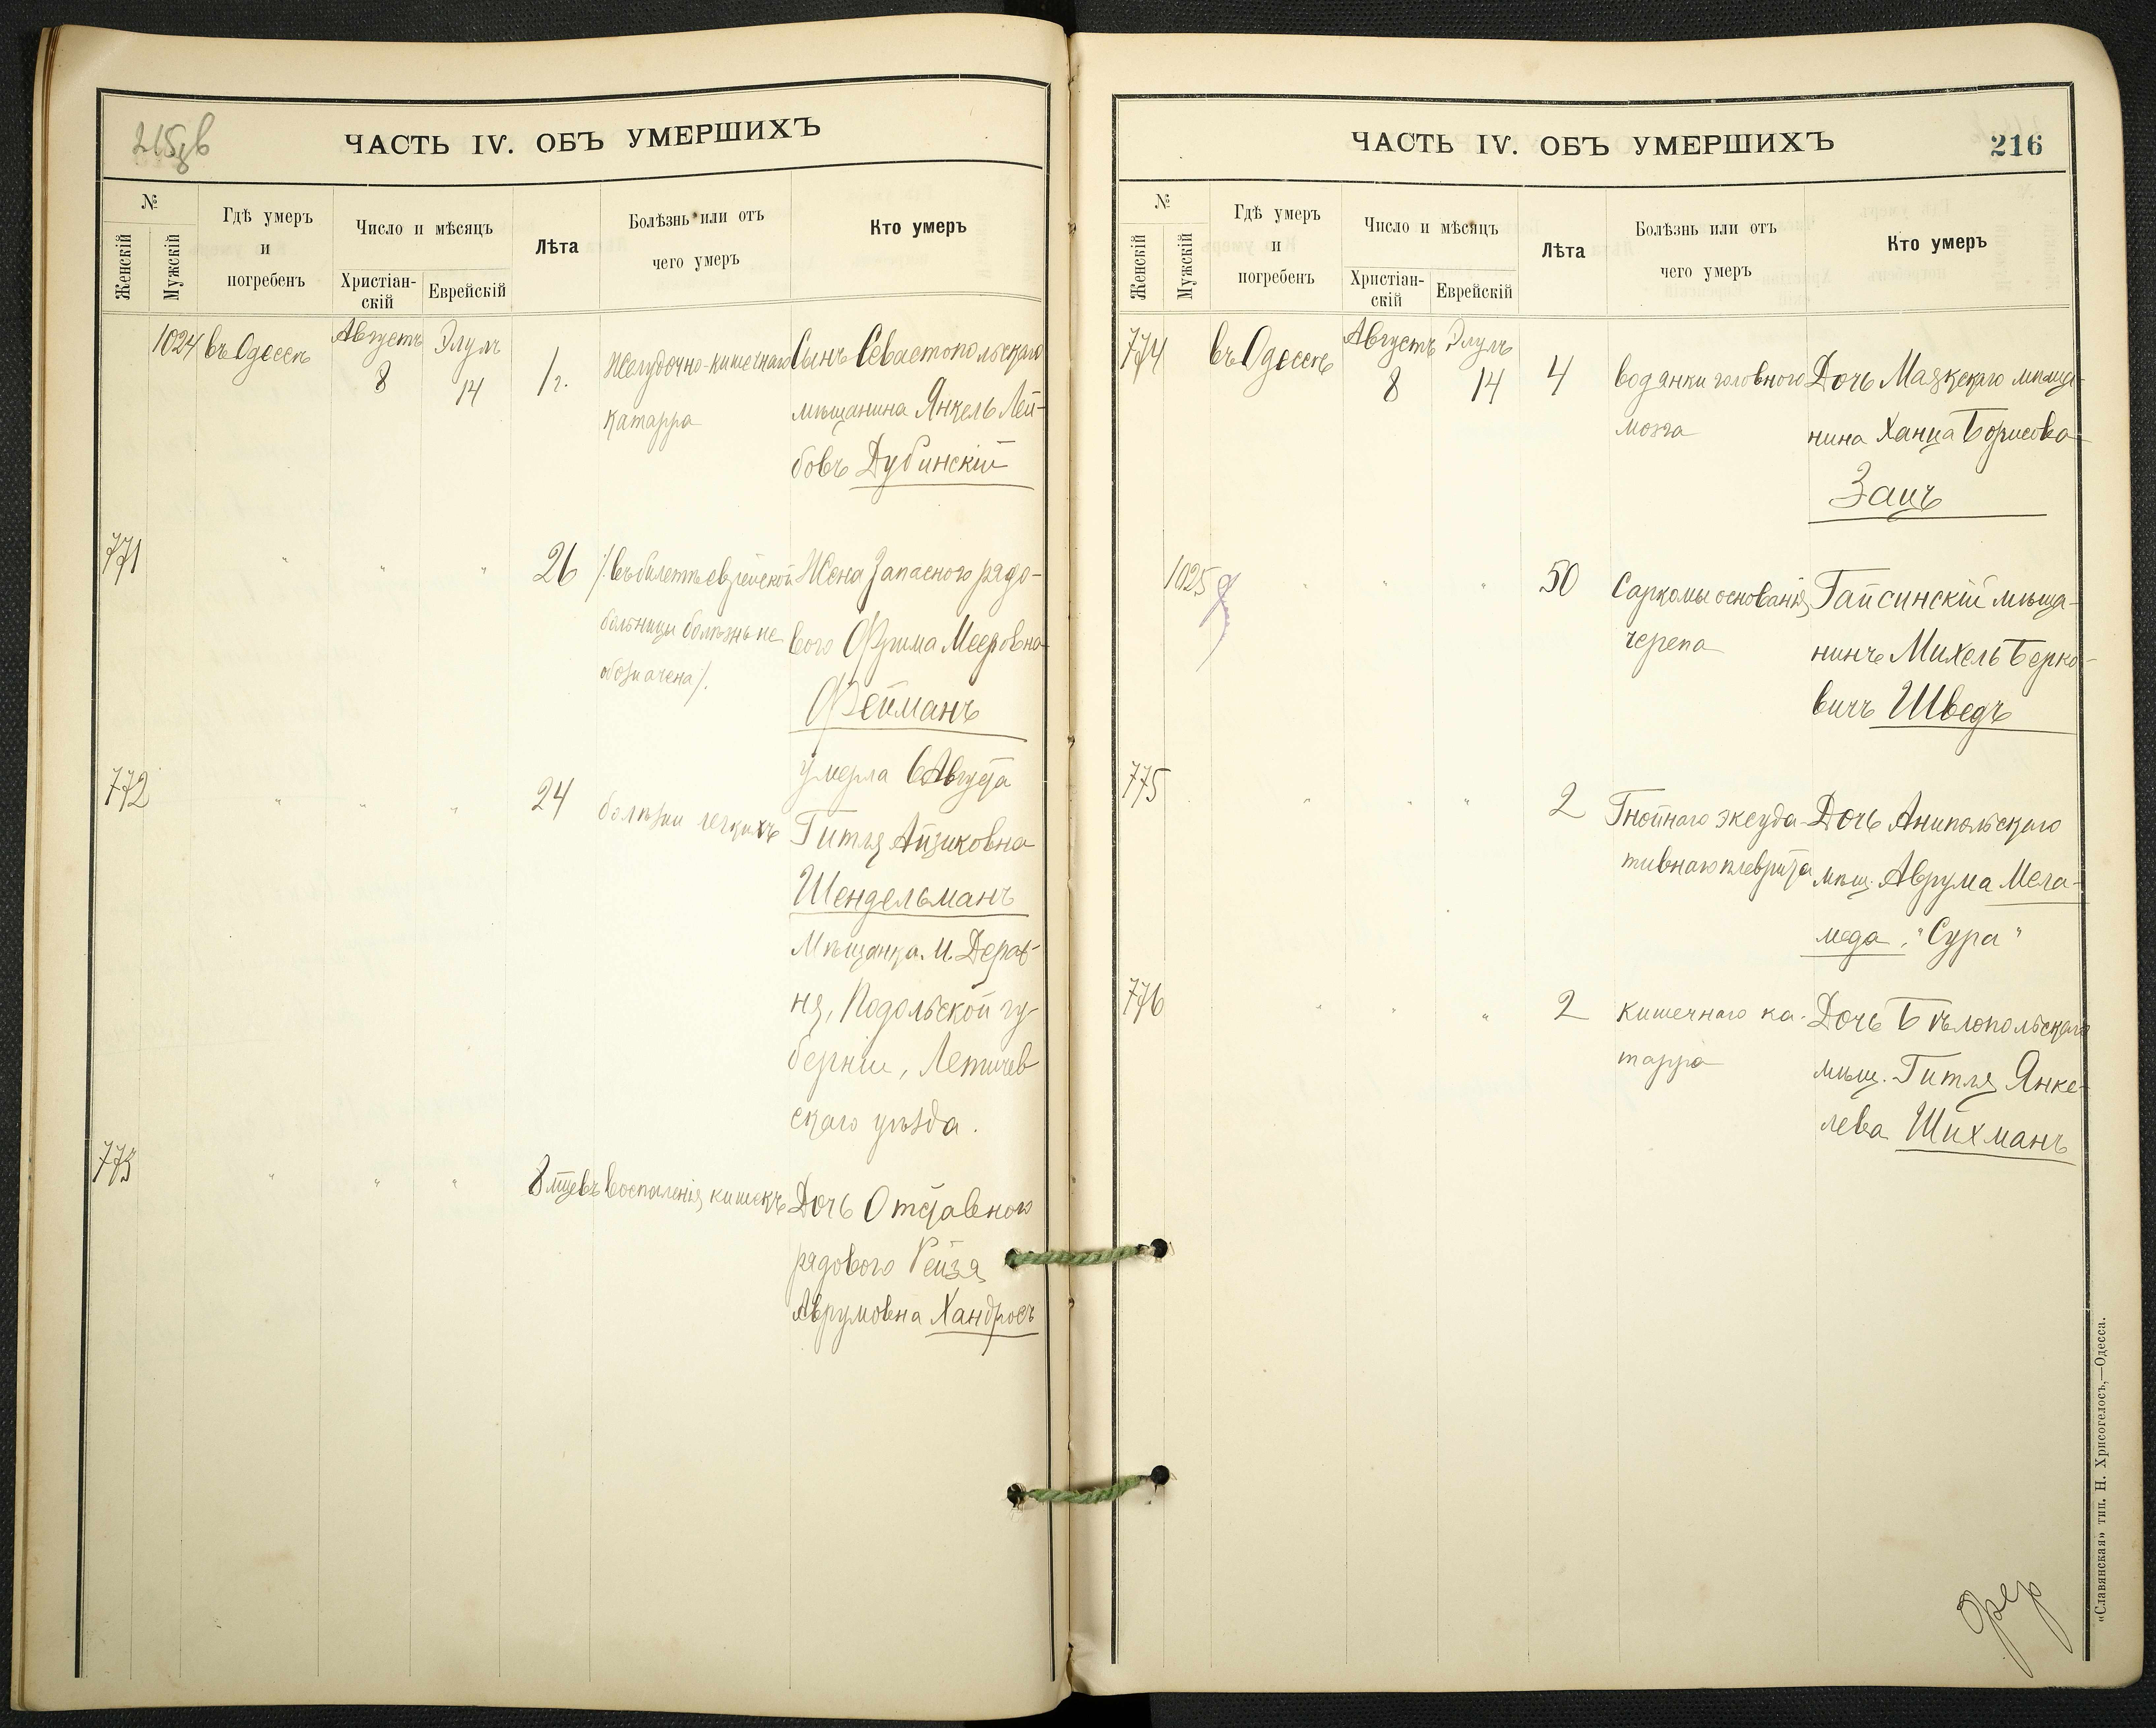 215об
ЧАСТЬ IV. ОБЪ УМЕРШИХЪ
№
Женскій
Мужскій
Гдѣ умеръ
и
погребенъ
Число и мѣсяцъ
Христіан-
скій
Еврейскій
Лѣта
Болѣзнь или отъ
чего умеръ
Кто умеръ
1024 въ Одессѣ Августъ 8 Элулъ 14 1 г.
Желудочно-кишечнаго
катарра
Сынъ Севастопольскаго
мѣщанина Янкель Лей-
бовъ Дубинскій
771 " " " 26
/.въ билетѣ еврейской
больницы болѣзнь не
обозначена/.
Жена Запаснаго рядо-
вого Фрима Мееровна
Фейманъ
умерла 6 Августа
772 " " " 24
болѣзни легкихъ
Гитля Айзиковна
Шендельманъ
Мѣщанка М. Дераж-
ня, Подольской гу-
берніи, Летичев
скаго уѣзда.
773 " " " 8 мцевъ
воспаленія кишекъ
Дочь Отставного
рядового Рейзя
Аврумовна Хандросъ
ЧАСТЬ IV. ОБЪ УМЕРШИХЪ
216
№
Женскій
Мужскій
Гдѣ умеръ
и
погребенъ
Число и мѣсяцъ
Христіан-
скій
Еврейскій
Лѣта
Болѣзнь или отъ
чего умеръ
Кто умеръ
774 въ Одессѣ Августъ 8 Элулъ 14 4
водянки головного
мозга
Дочь Маякскаго мѣща-
нина Ханца Борисова
Зацъ
1025 " " " 50
Саркомы основанія
черепа
Гайсинскій мѣща-
нинъ Михель Берко-
вичъ Шведъ
775 " " " 2
Гнойнаго эксуда-
тивнаго плеврита
Дочь Анипольскаго
мѣщ. Аврума Мела-
меда, "Сура"
776 " " " 2
кишечнаго ка-
тарра
Дочь Бѣлопольскаго
мѣщ. Гитля Янке-
лева Шихманъ
«Славянская» тип. Н. Хрисогелосъ,—Одесса.